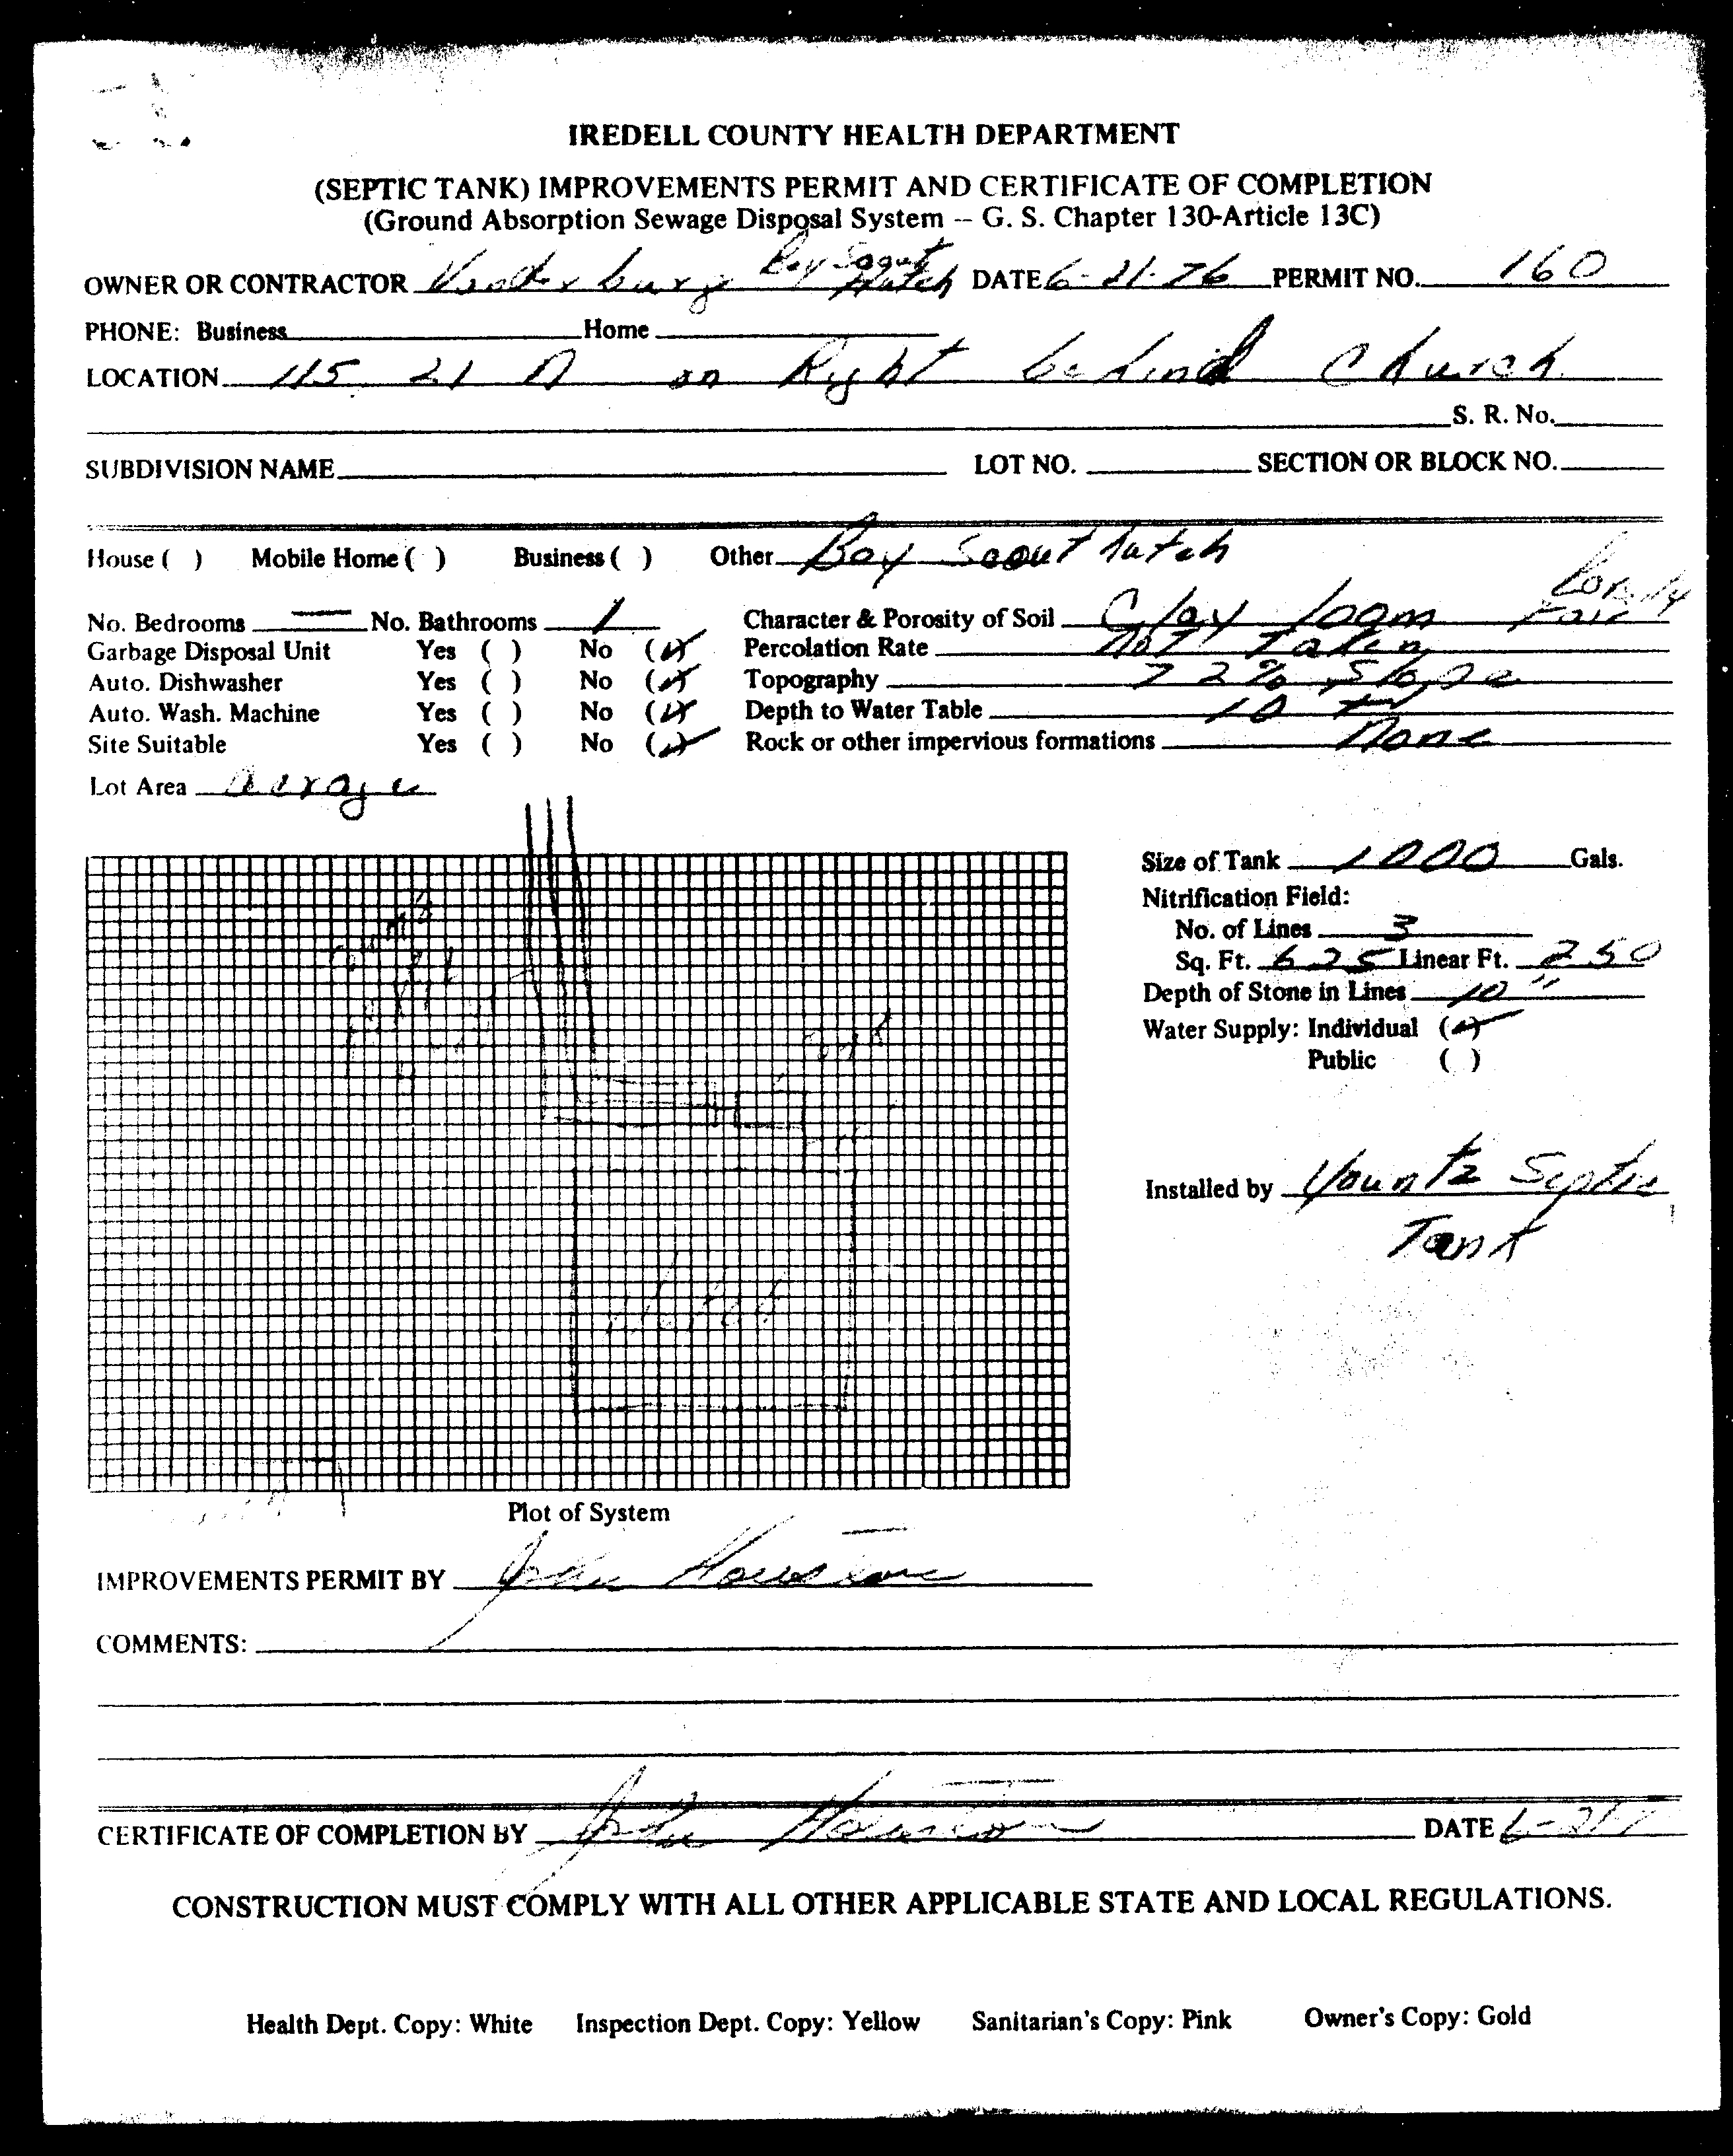 IREDELL COUNTY HEALTH DEPARTMENT
(SEPTIC TANK) IMPROVEMENTS PERMIT AND CERTIFICATE OF COMPLETION
(Ground Absorption Sewage Disposal System -- G. S. Chapter 130-Article 13C)
OWNER OR CONTRACTOR Boy Scout Hutch DATE 6-21-76 PERMIT NO. 160
PHONE: Business Home
LOCATION 115 21 N on Right behind Church
S. R. No.
SUBDIVISION NAME LOT NO. SECTION OR BLOCK NO.
House ( ) Mobile Home ( ) Business ( ) Other Boy Scout hutch
No. Bedrooms — No. Bathrooms 1 Character & Porosity of Soil Clay loam Fair
Garbage Disposal Unit Yes ( ) No (✓) Percolation Rate Not Taken
Auto. Dishwasher Yes ( ) No (✓) Topography 72% Slope
Auto. Wash. Machine Yes ( ) No (✓) Depth to Water Table 10 +
Site Suitable Yes ( ) No (✓) Rock or other impervious formations None
Lot Area acrage
Size of Tank 1000 Gals.
Nitrification Field:
No. of Lines 3
Sq. Ft. 625 Linear Ft. 250
Depth of Stone in Lines 10"
Water Supply: Individual (✓)
Public ( )
Installed by Yountz Septic
Tank
Plot of System
IMPROVEMENTS PERMIT BY John Houston
COMMENTS:
CERTIFICATE OF COMPLETION BY John Houston DATE 6-21-7
CONSTRUCTION MUST COMPLY WITH ALL OTHER APPLICABLE STATE AND LOCAL REGULATIONS.
Health Dept. Copy: White Inspection Dept. Copy: Yellow Sanitarian's Copy: Pink Owner's Copy: Gold